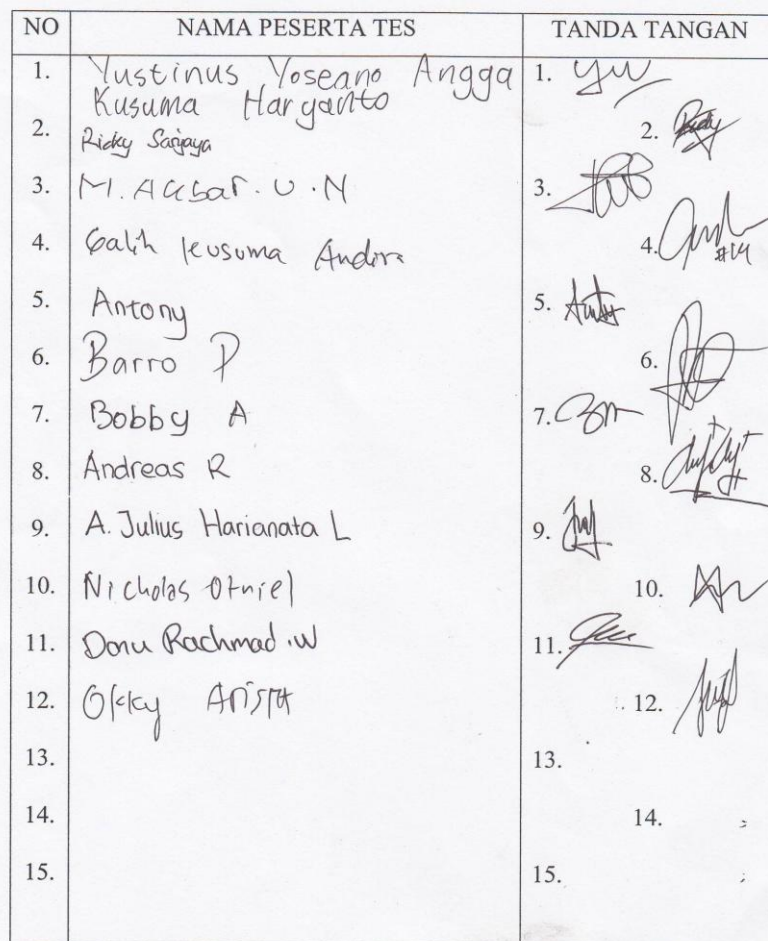 NO NAMA PESERTA TES TANDA TANGAN
1. Yustinus Yoseano Angga 1.
Kusuma Haryanto
2. Ricky Sanjaya 2.
3. M. Akbar. U. N 3.
4. Galih Kusuma Andira 4. #14
5. Antony 5.
6. Barro P 6.
7. Bobby A 7.
8. Andreas R 8.
9. A. Julius Harianata L 9.
10. Nicholas Otniel 10.
11. Donu Rachmad .W 11.
12. Okky Arista 12.
13. 13.
14. 14.
15. 15.